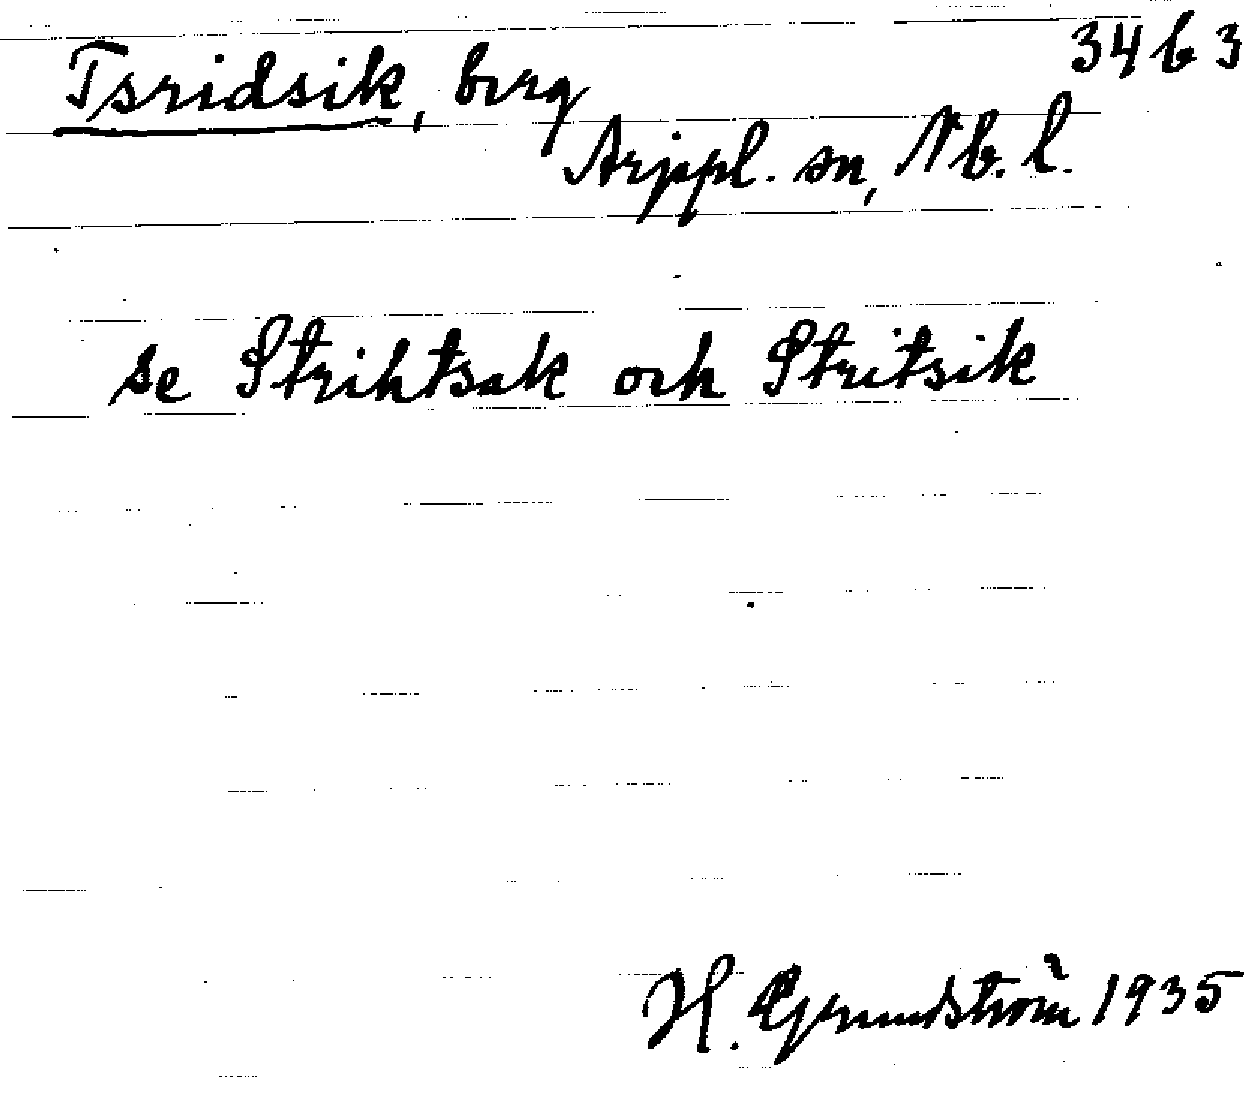 Tsridsik, berg 34 b 3
Arjppl. sn, Nb. l.
se Strihtsak och Stritsik
H. Grundström 1935